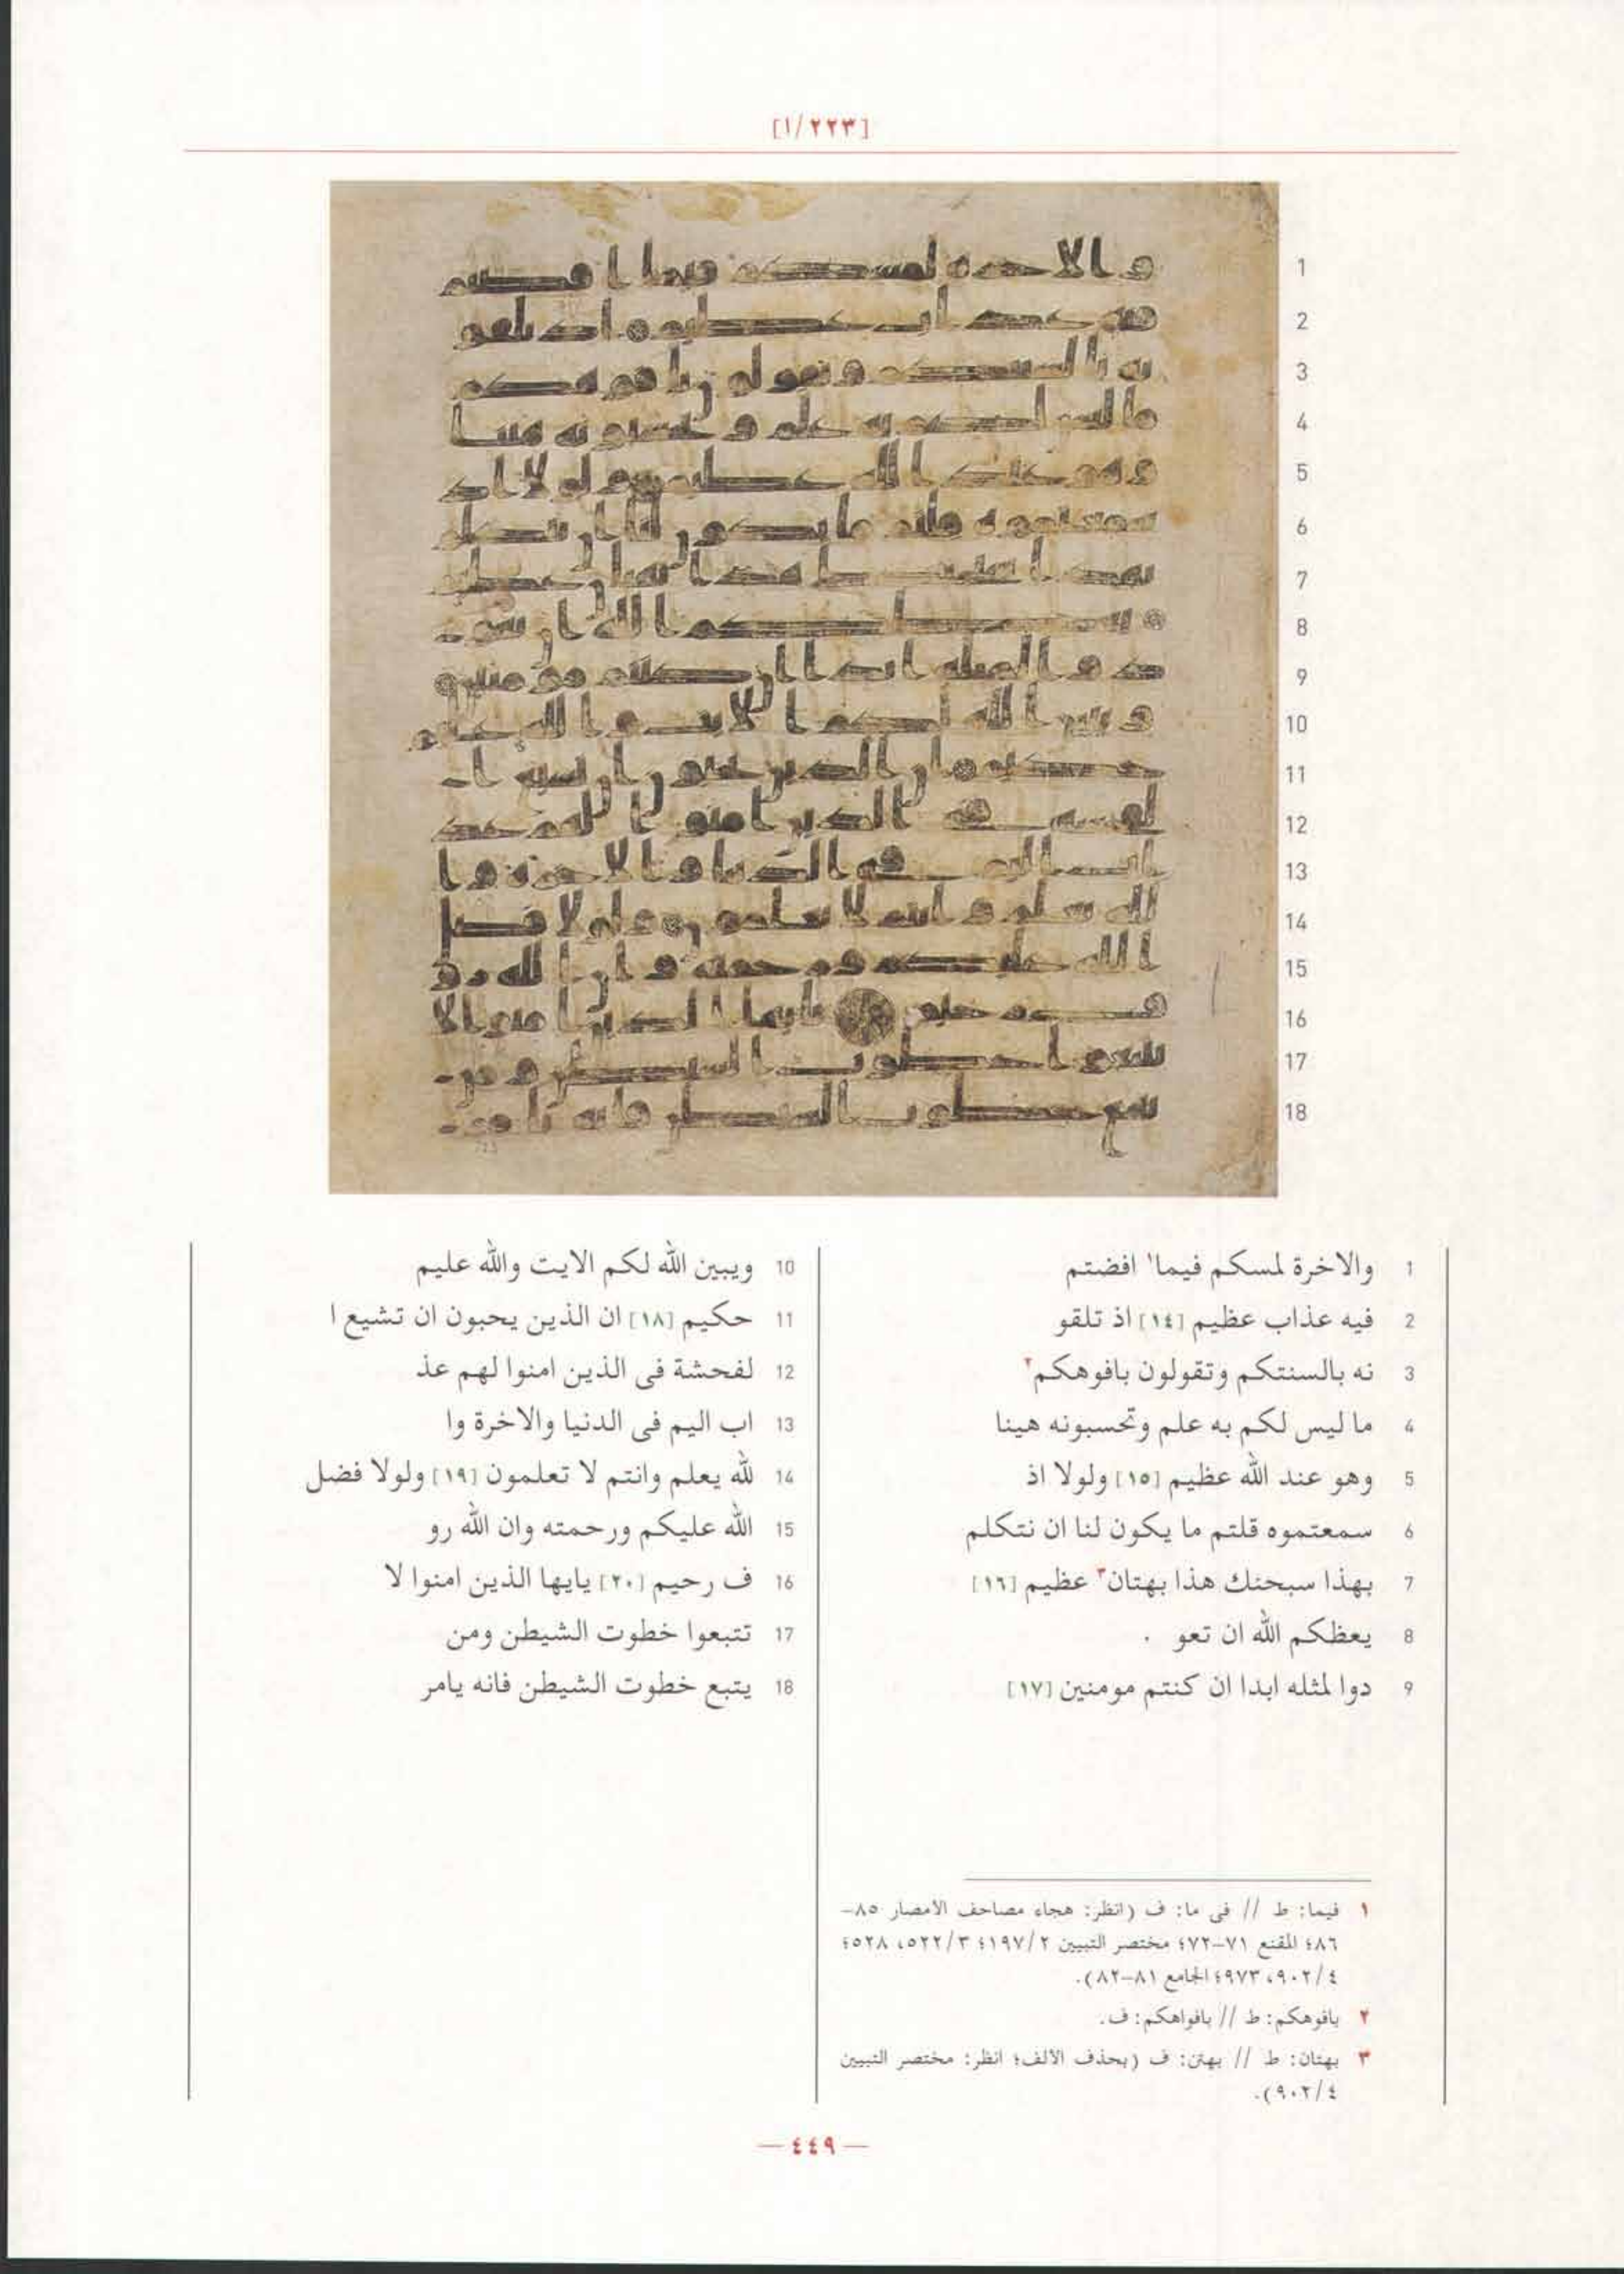 [١/٢٢٣]
1 والاخرة لمسكم فيما١ افضتم
2 فيه عذاب عظيم [١٤] اذ تلقو
3 نه بالسنتكم وتقولون بافوهكم٢
4 ما ليس لكم به علم وتحسبونه هينا
5 وهو عند الله عظيم [١٥] ولولا اذ
6 سمعتموه قلتم ما يكون لنا ان نتكلم
7 بهذا سبحنك هذا بهتان٣ عظيم [١٦]
8 يعظكم الله ان تعو .
9 دوا لمثله ابدا ان كنتم مومنين [١٧]
10 ويبين الله لكم الايت والله عليم
11 حكيم [١٨] ان الذين يحبون ان تشيع ا
12 لفحشة فى الذين امنوا لهم عذ
13 اب اليم فى الدنيا والاخرة وا
14 لله يعلم وانتم لا تعلمون [١٩] ولولا فضل
15 الله عليكم ورحمته وان الله رو
16 ف رحيم [٢٠] يايها الذين امنوا لا
17 تتبعوا خطوت الشيطن ومن
18 يتبع خطوت الشيطن فانه يامر
١ فيما: ط // فى ما: ف (انظر: هجاء مصاحف الامصار ٨٥-
٨٦؛ المقنع ٧١-٧٢؛ مختصر التبيين ١٩٧/٢؛ ٥٢٢/٣، ٥٢٨؛
٩٠٢/٤، ٩٧٣؛ الجامع ٨١-٨٢).
٢ بافوهكم: ط // بافواهكم: ف.
٣ بهتان: ط // بهتن: ف (بحذف الالف؛ انظر: مختصر التبيين
٩٠٢/٤).
— ٤٤٩ —